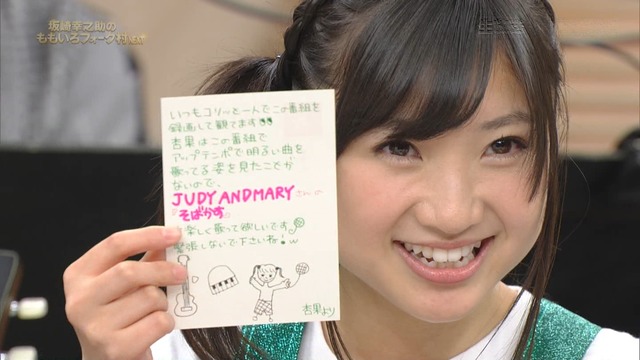 坂崎幸之助の
ももいろフォーク村
いつもコソッと一人でこの番組を
録画して観てます
杏果はこの番組で
アップテンポで明るい曲を
歌ってる姿を見たことが
ないので、
JUDY AND MARY さんの
"そばかす"
楽しく歌って欲しいです
緊張しないで下さいね!
杏果より